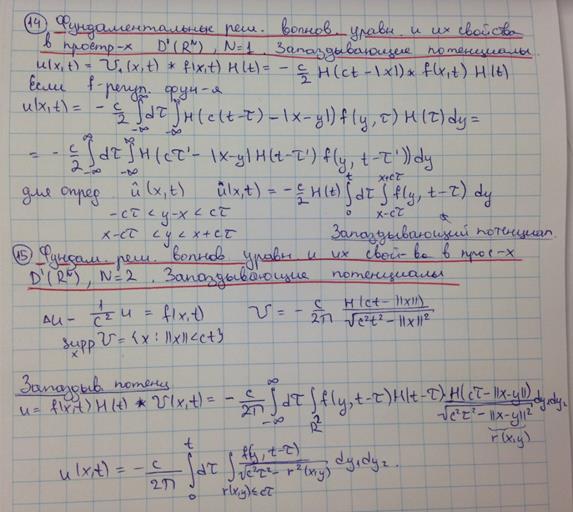 14 Фундаментальные реш. волнов. уравн. и их свойства
в простр-х D'(Rᴺ), N=1. Запаздывающие потенциалы.
u(x,t) = V₁(x,t) * f(x,t) H(t) = - c/2 H(ct-|x|) * f(x,t) H(t)
Если f-регул. функ-я
u(x,t) = - c/2 ∫_{-∞}^{∞} dτ ∫_{-∞}^{∞} H(c(t-τ) - |x-y|) f(y,τ) H(τ) dy =
= - c/2 ∫_{-∞}^{∞} dτ ∫_{-∞}^{∞} H(cτ' - |x-y| H(t-τ') f(y, t-τ')) dy
для опред. û(x,t) û(x,t) = - c/2 H(t) ∫_0^t dτ ∫_{x-cτ}^{x+cτ} f(y, t-τ) dy
-cτ < y-x < cτ
x-cτ < y < x+cτ Запаздывающий потенциал.
15 Фундам. реш. волнов. уравн. и их свой-ва в прос-х
D'(Rᴺ), N=2. Запаздывающие потенциалы
Δu - 1/c² u = f(x,t) V = - c/2π H(ct-||x||)/√(c²t²-||x||²)
supp_x V = {x: ||x||<ct}
Запаздыв. потенц
u = f(x,t) H(t) * V(x,t) = - c/2π ∫_{-∞}^{∞} dτ ∫_{R²} f(y, t-τ) H(t-τ) · H(cτ-||x-y||)/√(c²τ²-||x-y||²) dy₁dy₂
r(x,y)
u(x,t) = - c/2π ∫_0^t dτ ∫_{r(x,y)≤cτ} f(y, t-τ)/√(c²τ²-r²(x,y)) dy₁dy₂.